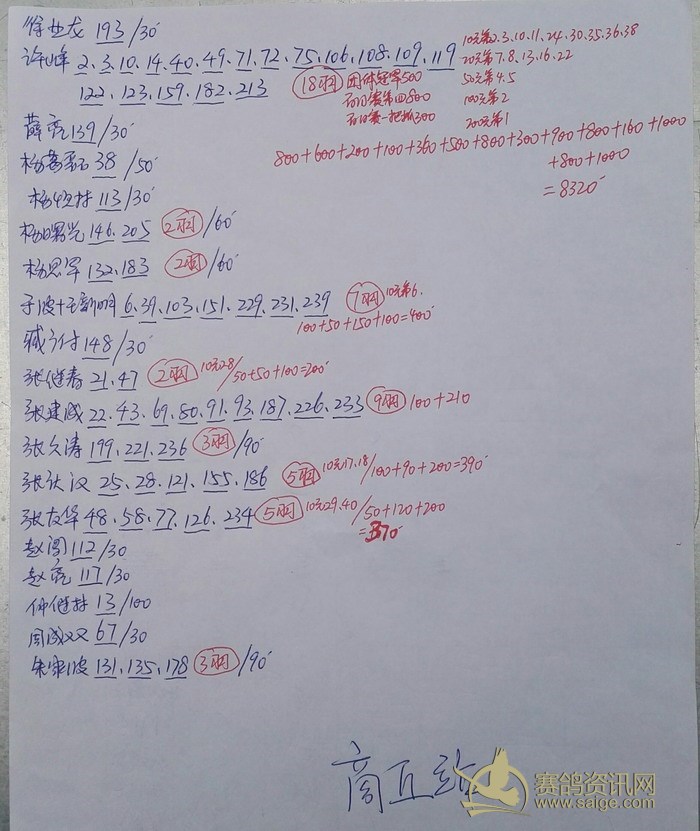 徐世龙 193/30
许峰 2.3.10.14.40.49.71.72.75.106.108.109.119
122.123.159.182.213 18羽
10元第2.3.10.11.24.30.35.36.38
20元第7.8.13.16.22
团体冠军500 50元第4.5
百日赛第四800 100元第2
百日赛一把抓300 200元第1
800+600+200+100+360+500+800+300+900+800+160+1000
+800+1000
=8320
薛亮 139/30
38/50
杨恒林 113/30
杨曙光 146.205 2羽/60
杨思军 132.183 2羽/60
于波+王新明 6.39.103.151.229.231.239 7羽 10元第6.
100+50+150+100=400
臧守付 148/30
张继春 21.47 2羽 10元28/50+50+100=200
张建成 22.43.69.80.91.93.187.226.233 9羽 100+210
张久涛 199.221.236 3羽/90
张认汉 25.28.121.155.186 5羽 10元17.18/100+90+200=390
张友华 48.58.77.126.234 5羽 10元29.40/50+120+200
=370
赵阔 112/30
赵亮 117/30
仲继林 13/100
周成双 67/30
朱家波 131.135.178 3羽/90
商丘站
赛鸽资讯网
www.saige.com